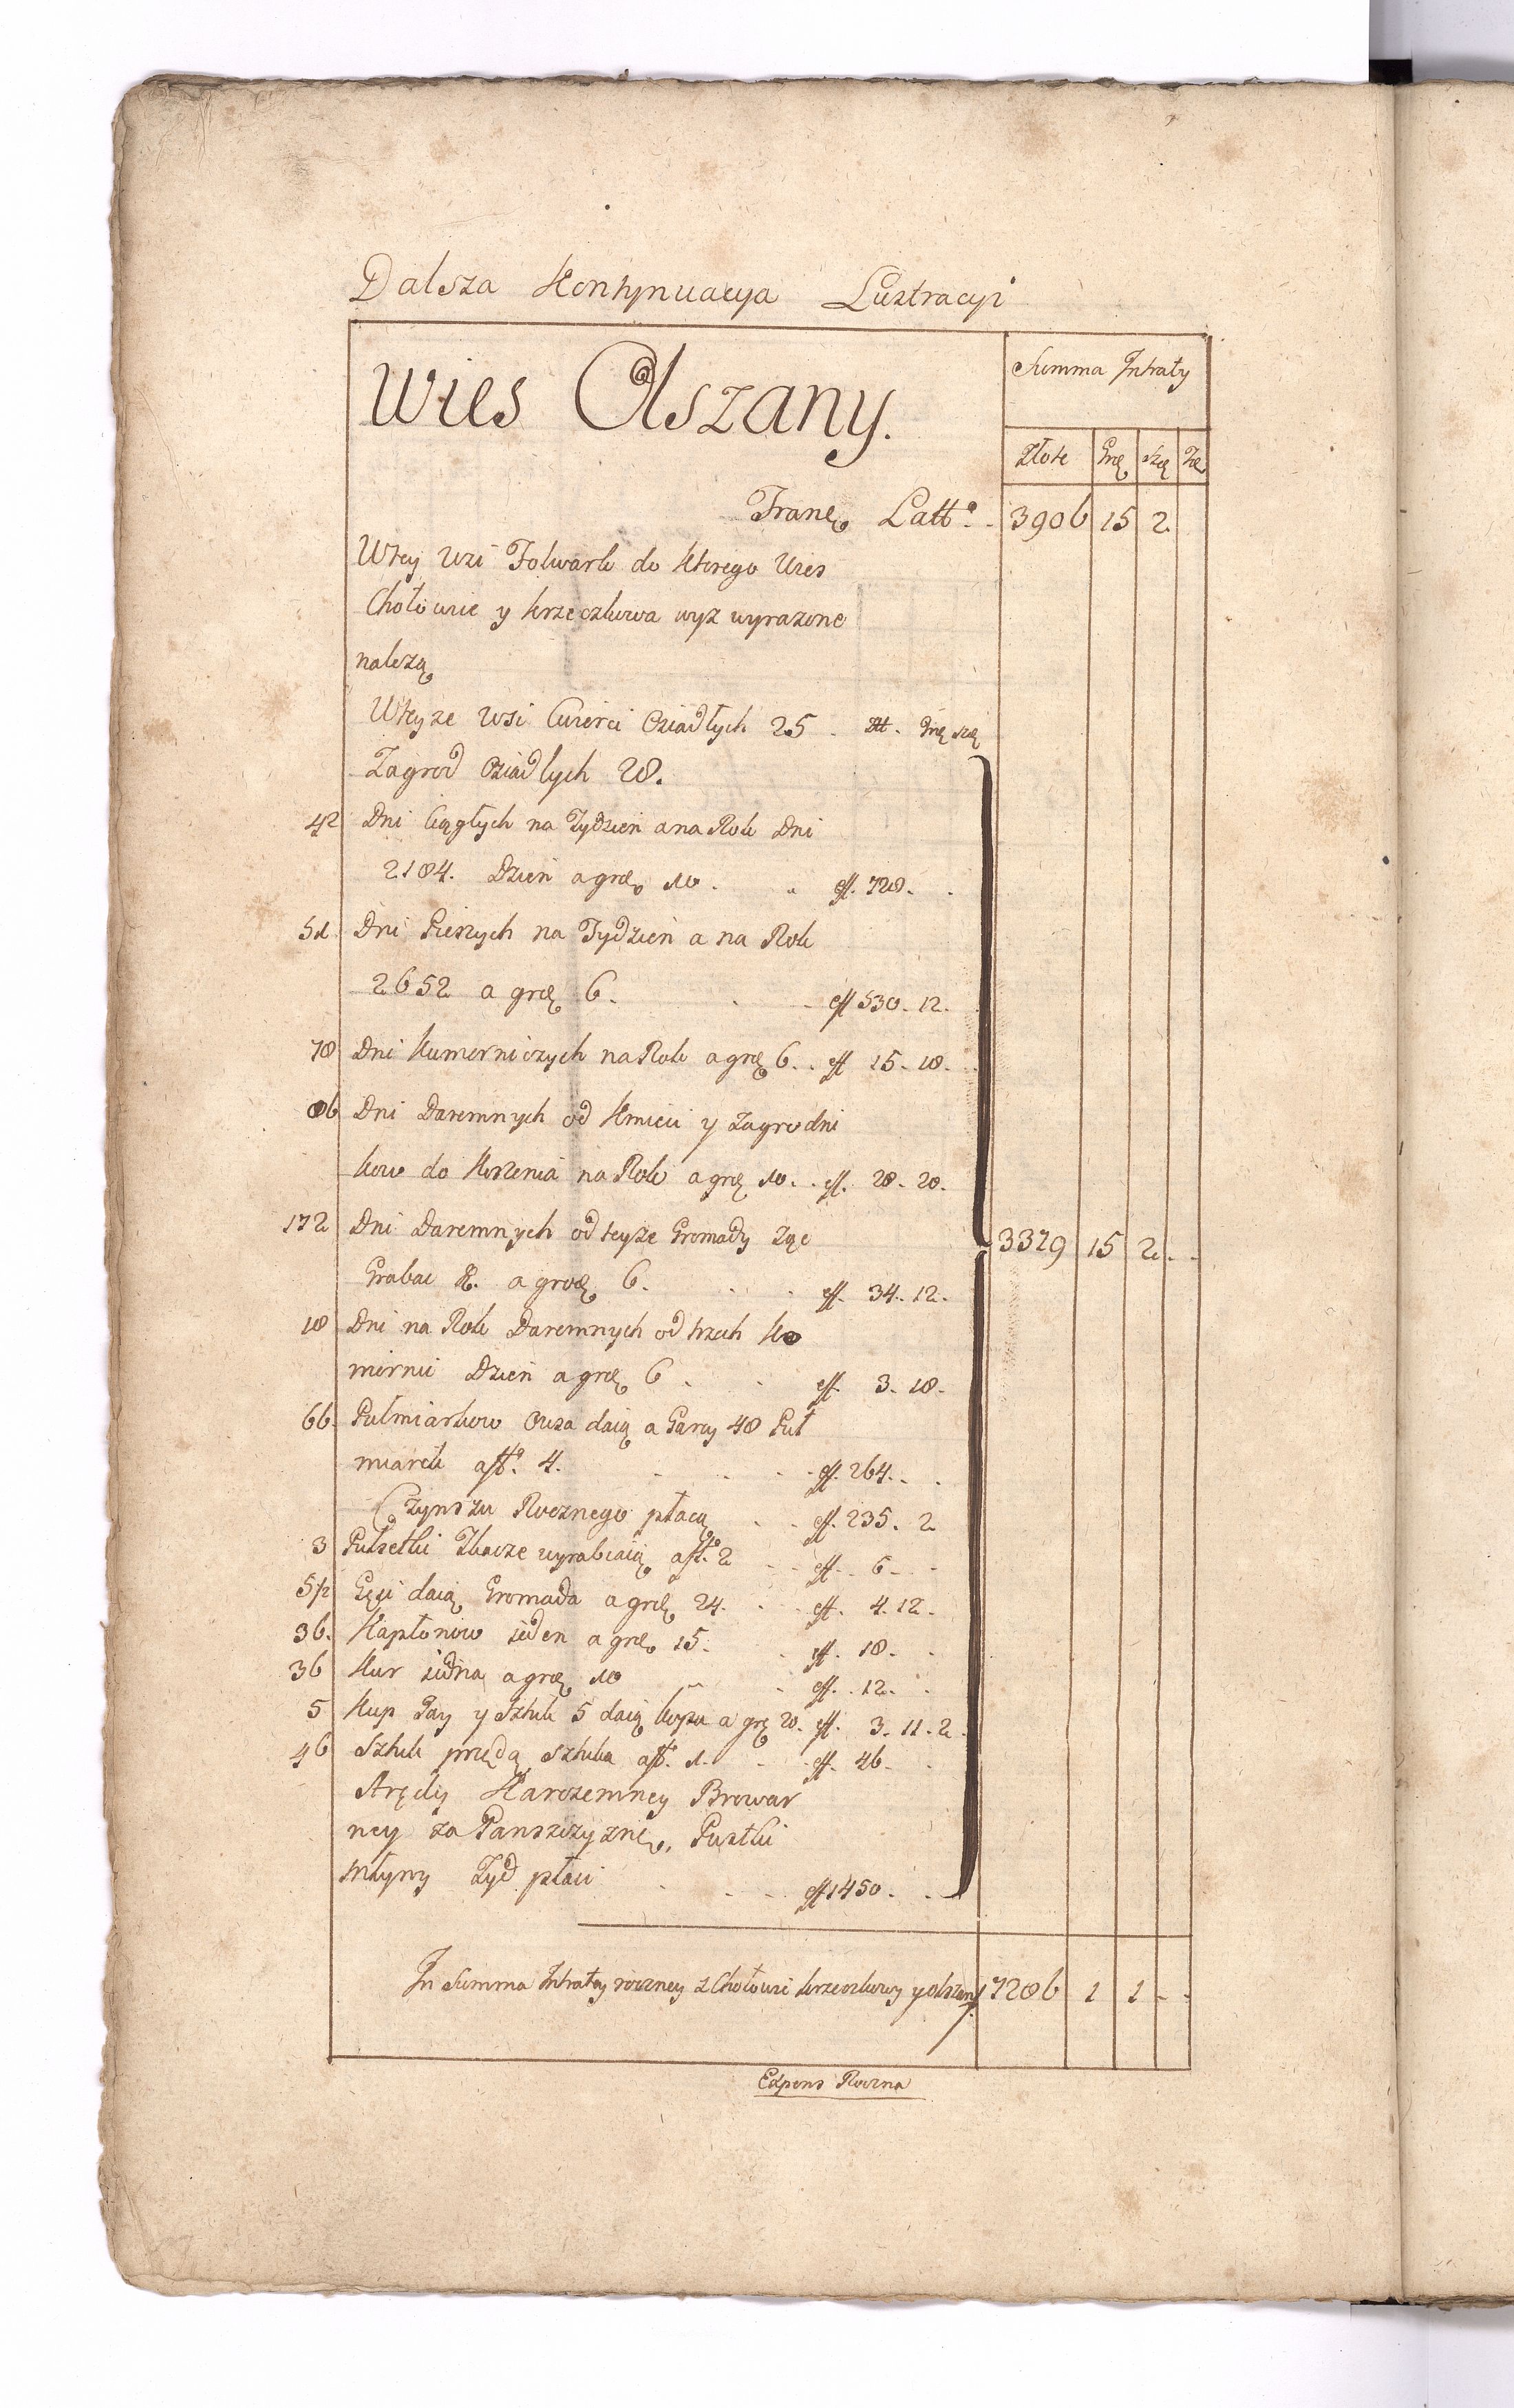 Dalsza Kontynuacya Lustracyi
Wies Olszany.
Summa Intraty
Złote Grę Szę
Tranę Latt° 3906 15 2
Wtey wsi Folwark do ktorego Wies
Chołowie y krzeczkowa wyz wyrazone
nalezą
Wteyze wsi Cwierci Osiadłych 25 złt. Grę szę
Zagrod osiadłych 28.
42 Dni Ciągłych na Tydzien a na Rok Dni
2184. Dzien a grę 10. ff. 728.
51 Dni Pieszych na Tydzien a na Rok
2652 a grę 6. ff 530. 12.
78 Dni kumorniczych na Rok a grę 6. ff 15. 18.
86 Dni Daremnych od Kmieci y Zagrodni
kow do Koszenia na Rok a grę 10. ff. 28. 20.
172 Dni Daremnych od teyze Gromady Ząć
Grabac &. a grę 6. ff. 34. 12.
3379 15 2
18 Dni na Rok Daremnych od trzech Ko
mornic Dzien a grę 6. ff. 3. 18.
66. Pułmiarkow Owsa daią a Garcy 48 Puł
miarek a ft. 4. ff. 264.
Czynszu Rocznego płacą ff. 235. 2
3 Pułsetki Tkacze wyrabiaią a ft. 2 ff. 6
5½ Gęsi daią Gromada a grę 24. ff. 4. 12.
36. Kapłonow ieden a grę 15. ff. 18.
36 Kur iedna a grę 10 ff. 12.
5 Kup Jay y Sztuk 5 daią kopa a grę 20. ff. 3. 11. 2
46 Sztuk przędą sztuka a ft. 1. ff. 46.
Arędy Karczemney Browar
ney za Panszczyznę, Pustki
Młyny Zyd płaci ff 1450.
In Summa Intraty roczney z Chołowic krzeczkowy y olszan 7286 1 1
Expens Roczna